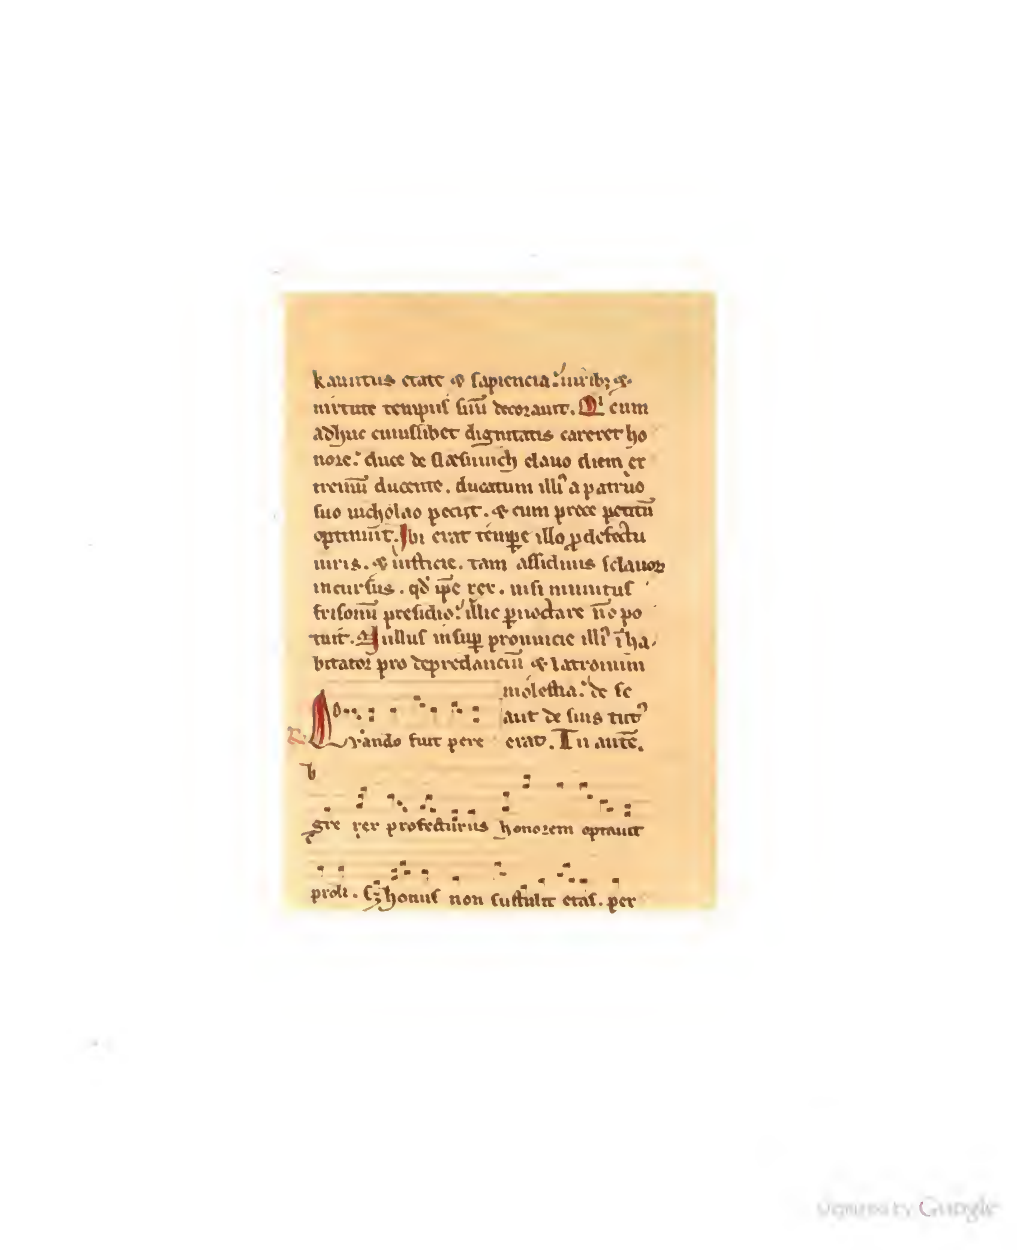 kanutus etate ⁊ sapiencia. uirib; ⁊
uirtute tempus suū decorauit. Qⁱ cum
adhuc cuiuslibet dignitatis careret ho
nore. duce de slæsuuich elauo diem ex
tremū ducente. ducatum illiꝰ a patruo
suo nicholao peciit. ⁊ cum prece petitū
optinuit. Ibi erat tempore illo ꝑ defectu
iuris. ⁊ iusticie. tam assiduus sclauoꝝ
incursus. qđ ip̄e rex. nisi munitus
frisonū presidio. illic ꝑnoctare n̄ po
tuit. Nullus insuꝑ prouincie illiꝰ īha
bitator pro depredanciū ⁊ latronum
molestia. de se
aut de suis tutꝰ
erat. In autē.
R. Orando fuit pere
gre rex profecturus honorem optauit
proli. sꝫ honus non sustulit etas. per
Digitized by Google